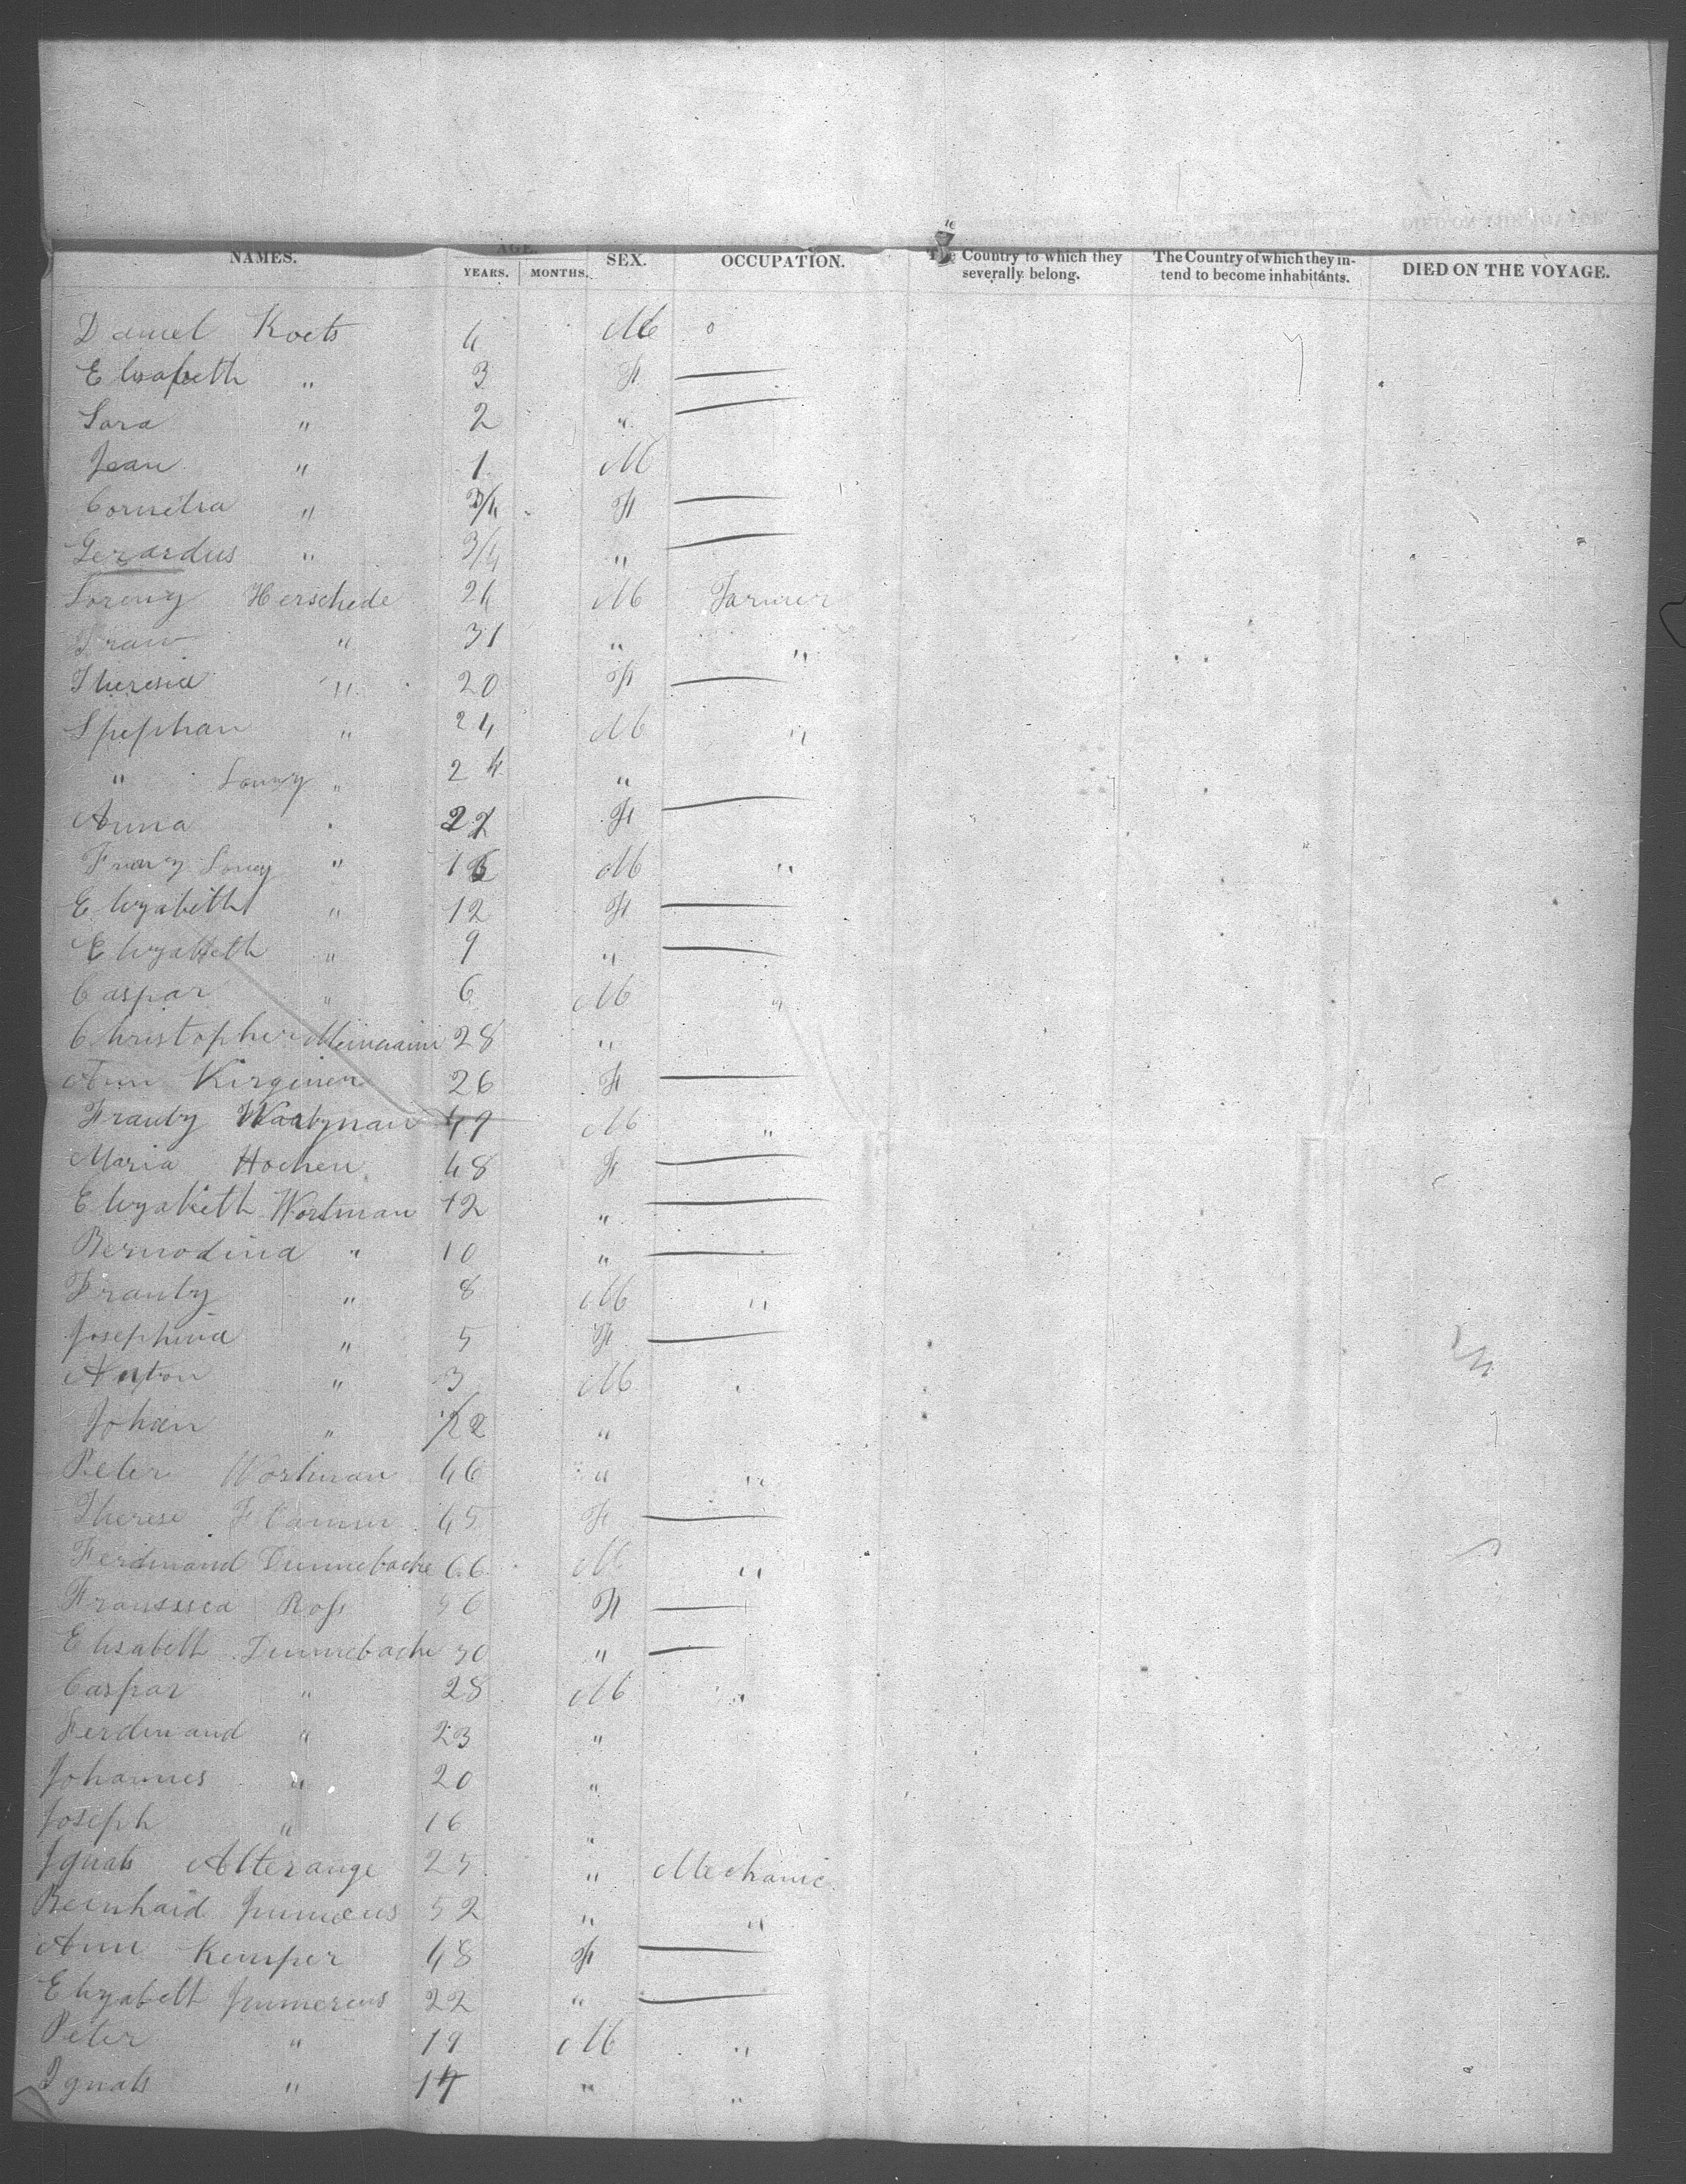 NAMES. AGE. YEARS. MONTHS. SEX. OCCUPATION. The Country to which they severally belong. The Country of which they intend to become inhabitants. DIED ON THE VOYAGE.
Daniel Koets 4 M
Elisabeth " 3 F —
Sara " 2 " —
Jean " 1 M
Cornelia " 3/4 F —
Gerardus " 3/4 " —
Lorenz Herschede 24 M Farmer
" 31 " "
Theresia " 20 F —
Spephan " 24 M "
" " 24 "
Anna 22 F —
Franz " M "
Elizabeth " 12 F —
Elizabeth " 9 " —
Caspar " 6 M "
Christopher 28 "
Ann 26 F —
Frantz Wortman 49 M "
Maria Hochen 48 F —
Elizabeth Wortman 12 " —
Bernodina " 10 " —
Frantz " 8 M "
Josephina " 5 F —
Anton " 3 M
Johan " "
Peter Wortman 46 " "
Therese 45 F —
Ferdinand Dunnebacke 66 M "
Ross 56 F —
Elisabeth Dunnebacke 30 " —
Caspar " 28 M "
Ferdinand " 23 "
Johannes " 20 "
Joseph " 16 "
Ignats Alterauge 25 " Mechanic
Bernhard 52 " "
Ann Kemper 48 F —
Elizabett 22 " —
Peter " 19 M "
Ignats " 17 " "